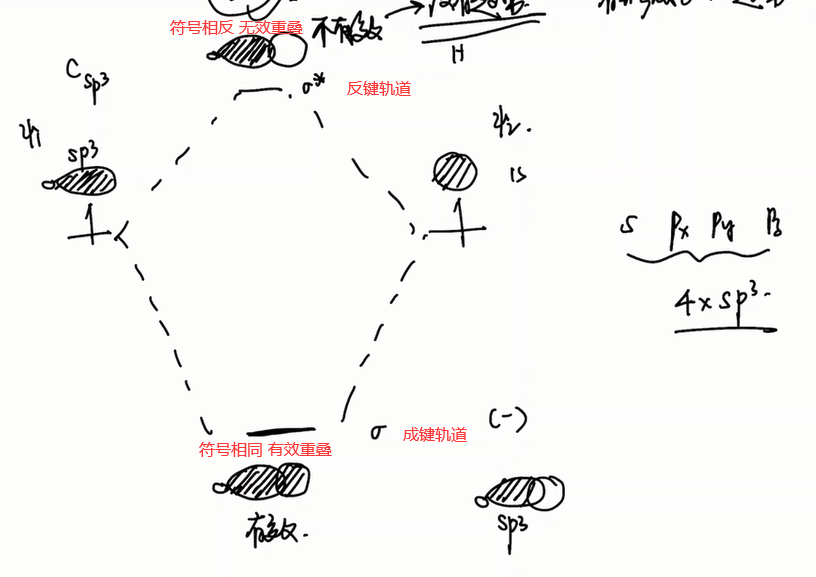 符号相反 无效重叠
不有效
H
C sp3
σ*
反键轨道
ψ1
sp3
ψ2.
1s
S Px Py Pz
4×sp3.
σ
成键轨道
(-)
符号相同 有效重叠
有效.
sp3